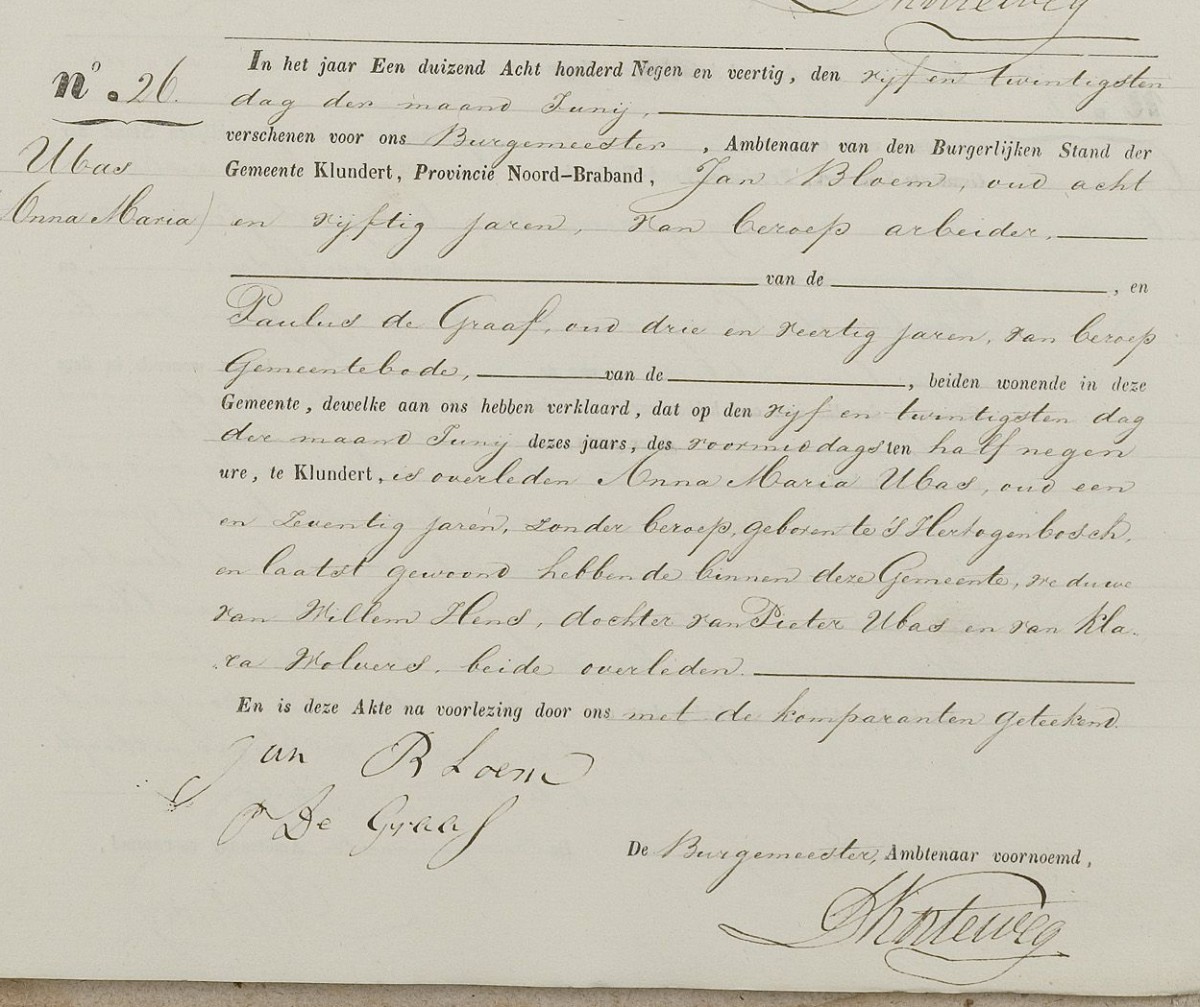 Korteweg
nº. 26.
Ubas
Anna Maria)
In het jaar Een duizend Acht honderd Negen en veertig, den vijf en twintigsten
dag der maand Junij,
verschenen voor ons Burgemeester, Ambtenaar van den Burgerlijken Stand der
Gemeente Klundert, Provincie Noord-Braband, Jan Bloem, oud acht
en vijftig jaren, van beroep arbeider,
van de , en
Paulus de Graaf, oud drie en veertig jaren, van beroep
Gemeentebode, van de , beiden wonende in deze
Gemeente, dewelke aan ons hebben verklaard, dat op den vijf en twintigsten dag
der maand Junij dezes jaars, des voormiddags ten half negen
ure, te Klundert, is overleden Anna Maria Ubas, oud een
en zeventig jaren, zonder beroep, geboren te 's Hertogenbosch,
en laatst gewoond hebbende binnen deze Gemeente, weduwe
van Willem Hens, dochter van Pieter Ubas en van Kla-
-ra Wolvers, beide overleden.
En is deze Akte na voorlezing door ons met de komparanten geteekend.
Jan Bloem
P De Graaf
De Burgemeester, Ambtenaar voornoemd,
Korteweg